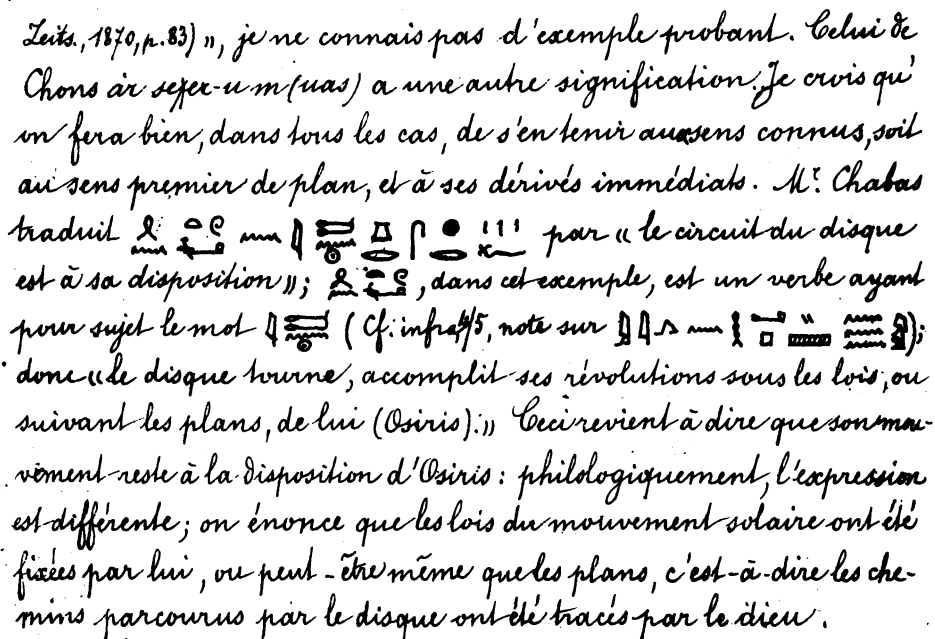 Zeits., 1870, p. 83) », je ne connais pas d'exemple probant. Celui de
Chons àr seχer-u m (uas) a une autre signification. Je crois qu'
on fera bien, dans tous les cas, de s'en tenir aux sens connus, soit
au sens premier de plan, et à ses dérivés immédiats. Mr. Chabas
traduit par « le circuit du disque
est à sa disposition »; , dans cet exemple, est un verbe ayant
pour sujet le mot (Cf. infra, note sur );
donc « le disque tourne, accomplit ses révolutions sous les lois, ou
suivant les plans, de lui (Osiris). » Ceci revient à dire que son mou-
vement reste à la disposition d'Osiris : philologiquement, l'expression
est différente ; on énonce que les lois du mouvement solaire ont été
fixées par lui, ou peut-être même que les plans, c'est-à-dire les che-
mins parcourus par le disque ont été tracés par le dieu.